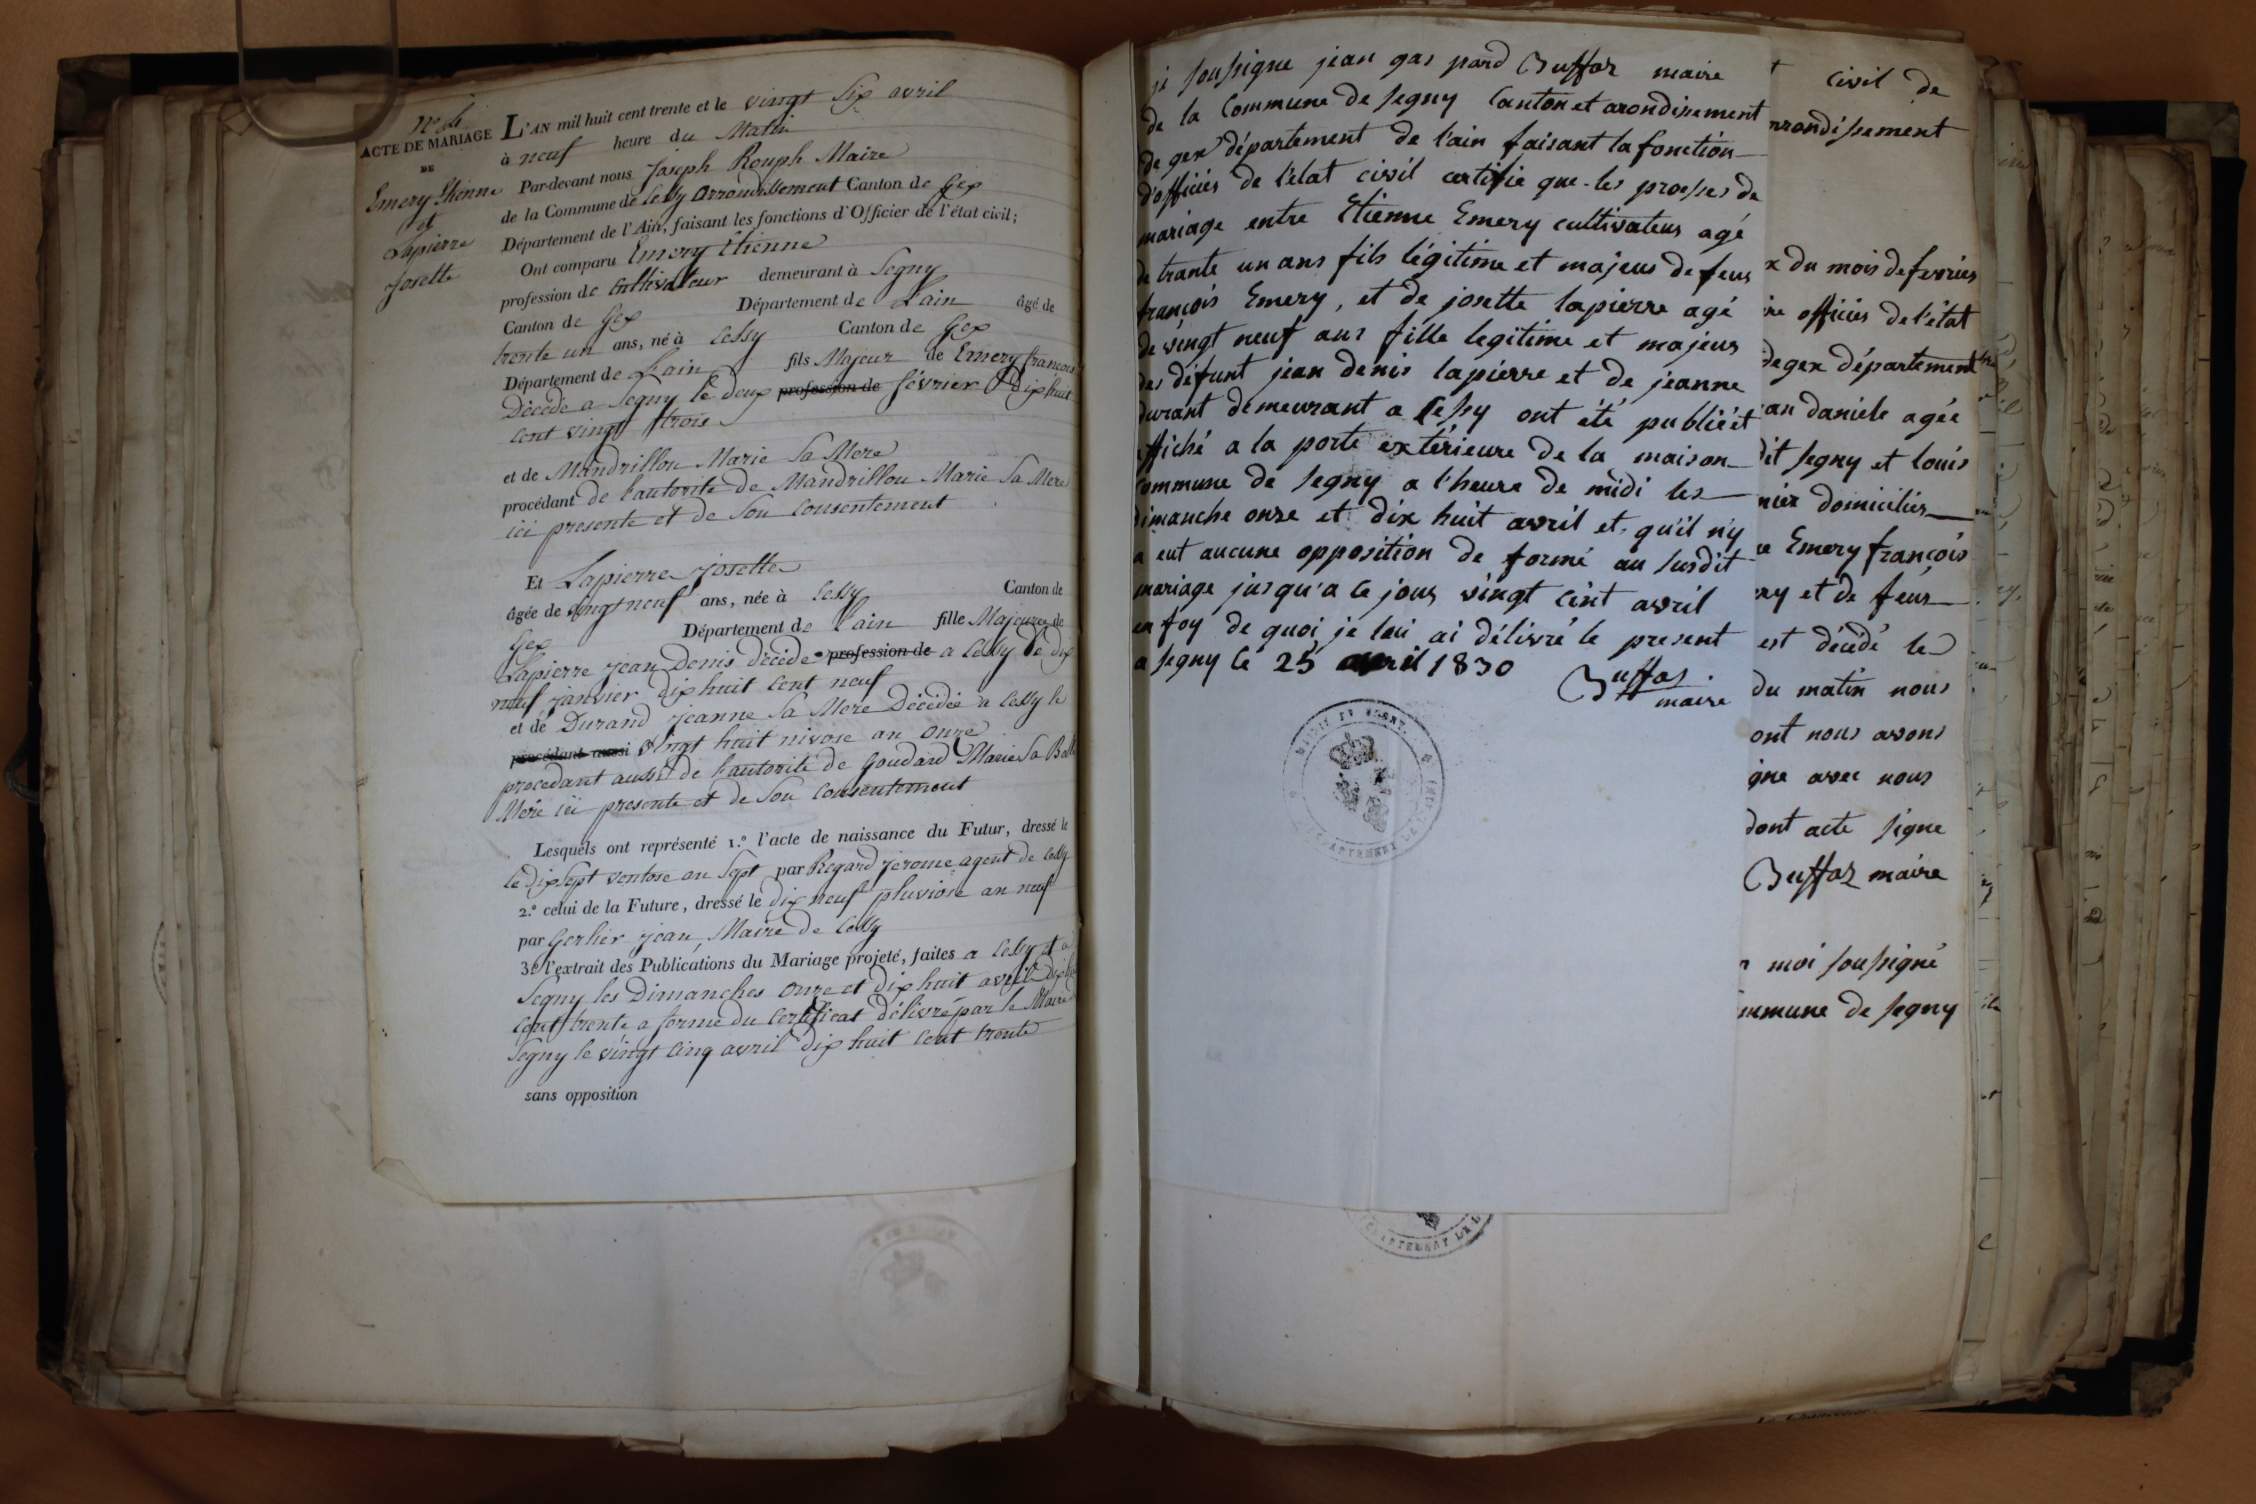 ACTE DE MARIAGE
DE
Emery Etienne
et
Lapierre
Josette
L'AN mil huit cent trente et le vingt Six avril
à neuf heure du Matin
Par-devant nous Joseph Rouph Maire
de la Commune de Cessy arrondissement Canton de Gex
Département de l'Ain, faisant les fonctions d'Officier de l'état civil;
Ont comparu Emery Etienne
profession de Cultivateur demeurant à Segny
Canton de Gex Département de L'ain âgé de
trente un ans, né à Cessy Canton de Gex
Département de L'ain fils Majeur de Emery francois
Décédé a Segny le deux profession de février dix huit
cent vingt trois
et de Mandrillon Marie Sa Mere
procédant de l'autorité de Mandrillon Marie Sa Mere
ici presente et de Son Consentement
Et Lapierre Josette
âgée de vingt neuf ans, née à Cessy Canton de
Gex Département de L'ain fille Majeure de
Lapierre jean Denis Décédé profession de a Cessy le dix
neuf janvier dix huit cent neuf
et de Durand jeanne Sa Mere Décédée a Cessy le
procédant aussi vingt huit nivose an onze
procedant aussi de l'autorité de Goudard Marie Sa Belle
Mère ici presente et de Son Consentement
Lesquels ont représenté 1.° l'acte de naissance du Futur, dressé le
le dix Sept ventose an Sept par Regard jerome agent de Cessy
2.° celui de la Future, dressé le dix neuf pluviose an neuf
par Gerlier jean, Maire de Cessy
3.° l'extrait des Publications du Mariage projeté, faites a Cessy et a
Segny les Dimanches onze et dix huit avril dix huit
cent trente a forme du Certificat délivré par le Maire
Segny le vingt cinq avril dix huit cent trente
sans opposition
je soussigne jean gas pard Buffaz maire
de la Commune de segny Canton et arondisement
de gex département de l'ain faisant la fonction
d'officiés de l'état civil certifie que les prosses de
mariage entre Etienne Emery cultivateus agé
de trante un ans fils légitime et majeus de feus
françois Emery, et de josette lapierre agé
de vingt neuf ans fille legitime et majeus
des défunt jean denis lapierre et de jeanne
durant demeurant a Cessy ont été publié et
affiché a la porte extérieure de la maison
Commune de segny a l'heure de midi les
dimanche onze et dix huit avril et qu'il n'y
a eut aucune opposition de formé au susdit
mariage jusqu'a ce jous vingt cint avril
en foy de quoi je lui ai délivré le present
a segny le 25 avril 1830
Buffas
maire
civil de
arrondissement
du mois de fevries
officiés de l'état
de gex département
daniele agée
segny et louis
domicilies
Emery françois
et de feus
est décédé le
du matin nous
ont nous avons
avec nous
dont acte signe
Buffaz maire
moi soussigné
de segny